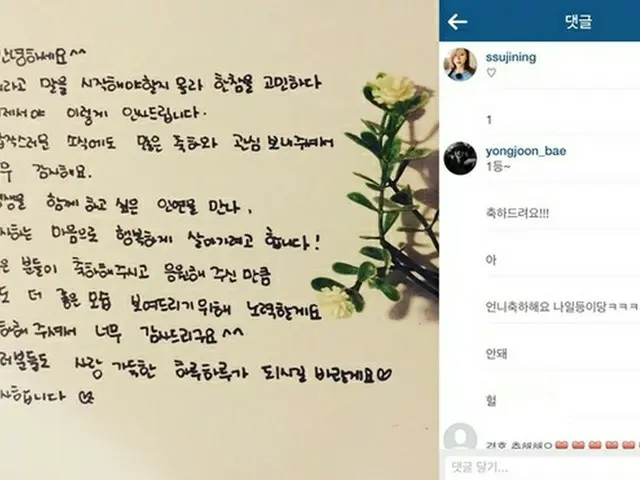 안녕하세요^^
라고 말을 시작해야할지 몰라 한참을 고민하다
이렇게 인사드립니다.
소식에도 많은 축하와 관심 보내주셔서
감사해요.
함께 하고 싶은 인연을 만나,
마음으로 행복하게 살아가려고 합니다!
분들이 축하해주시고 응원해 주신 만큼
더 좋은 모습 보여드리기 위해 노력할게요
해 주셔서 너무 감사드리구요^^
사랑 가득한 하루하루가 되시길 바랄게요♡
합니다 ♡
댓글
ssujining
♡
1
yongjoon_bae
1등~
축하드려요!!!
아
언니축하해요 나일등이당ㅋㅋㅋ
안돼
헐
결혼 축해해요
댓글 달기...